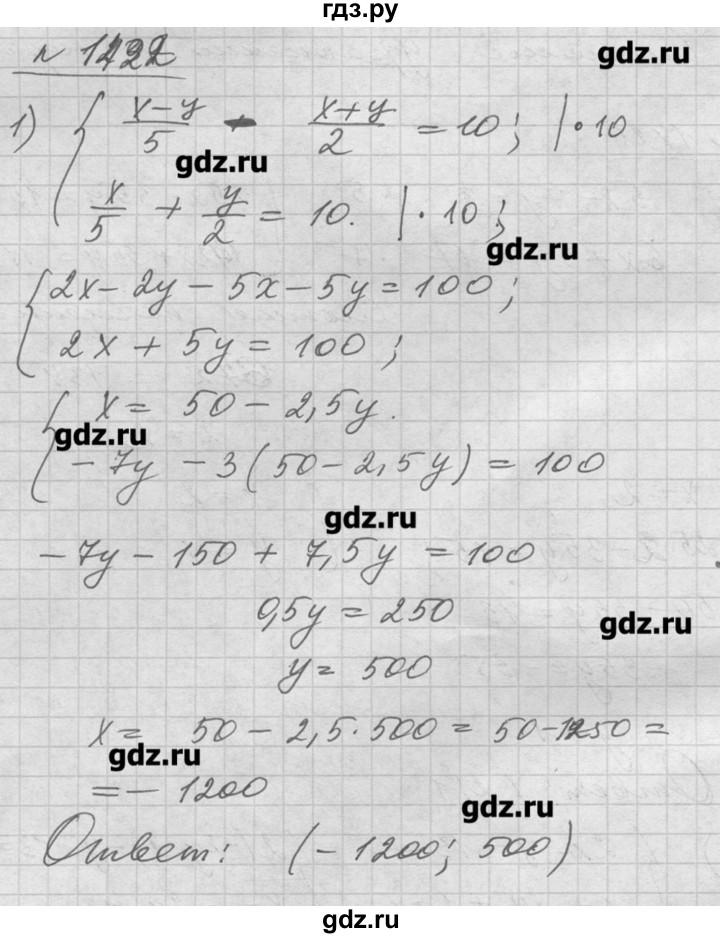 гдз.ру
gdz.ru
№ 1422
1) { (x-y)/5 - (x+y)/2 = 10; |·10
gdz.ru
x/5 + y/2 = 10. |·10;
gdz.ru
{ 2x - 2y - 5x - 5y = 100;
2x + 5y = 100;
{ x = 50 - 2,5y.
gdz.ru
-7y - 3(50 - 2,5y) = 100
gdz.ru
-7y - 150 + 7,5y = 100
0,5y = 250
gdz.ru
y = 500
x = 50 - 2,5·500 = 50-1250 =
gdz.ru
= - 1200
gdz.ru
Ответ: (-1200; 500)
gdz.ru